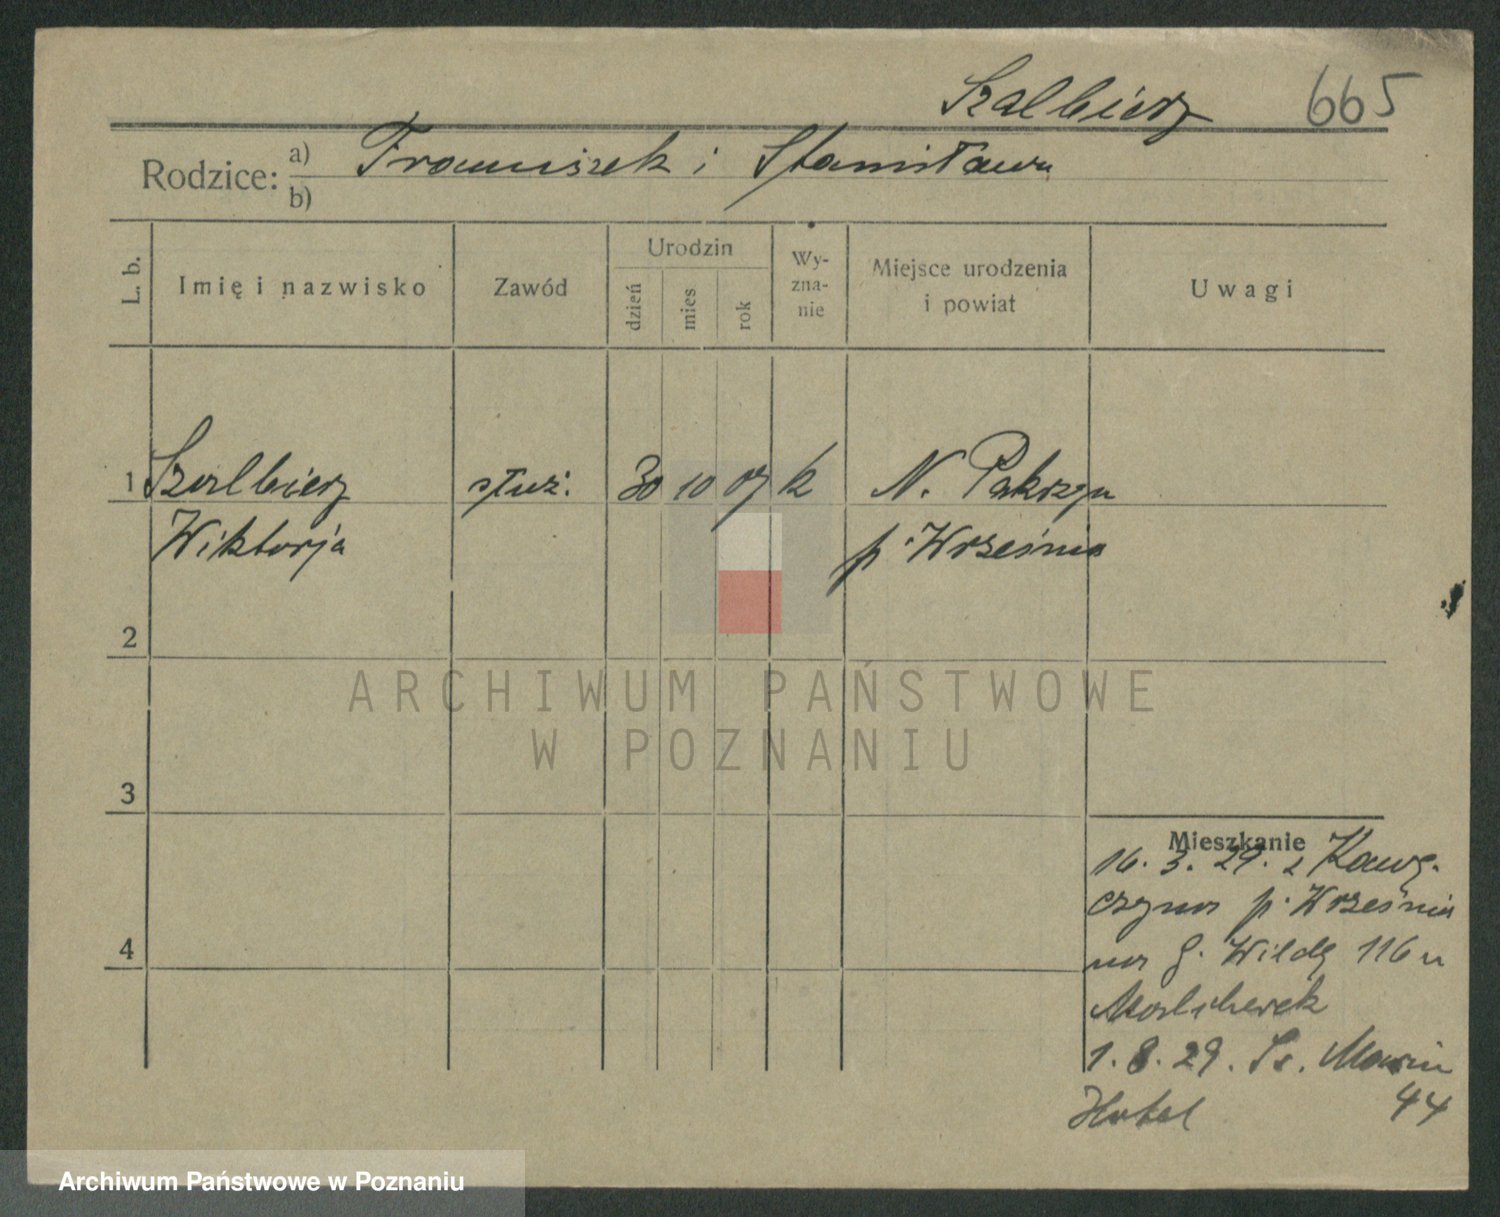 Szalbierz 665
Rodzice: a) Franciszek i Stanisława
b)
L. b. Imię i nazwisko Zawód Urodzin dzień mies rok Wy-zna-nie Miejsce urodzenia i powiat Uwagi
1 Szalbierz służ. 30 10 07 k N.
Wiktorja p. Września
2
3
Mieszkanie
16. 3. 29. z Kawę-
czyna p. Września
na G. Wildę 116 u
4
1. 8. 29. Św. Marcin
Hotel 44
ARCHIWUM PAŃSTWOWE
W POZNANIU
Archiwum Państwowe w Poznaniu